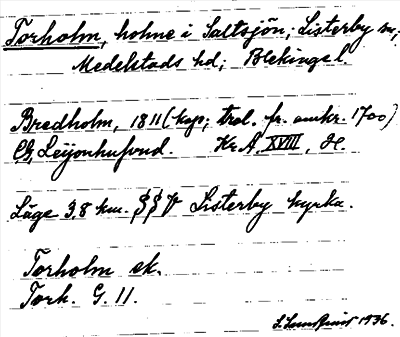 Torholm, holme i Saltsjön; Listerby sn;
Medelstads hd; Blekinge l.
Bredholm, 1811 (kop; trol. fr. omkr. 1700)
CG, Leijonhufvud. Kr. A. XVIII, H.
Läge 3,8 km. §§V Listerby kyrka.
Torholm ek.
Tork. G. 11.
S. Lundquist 1936.